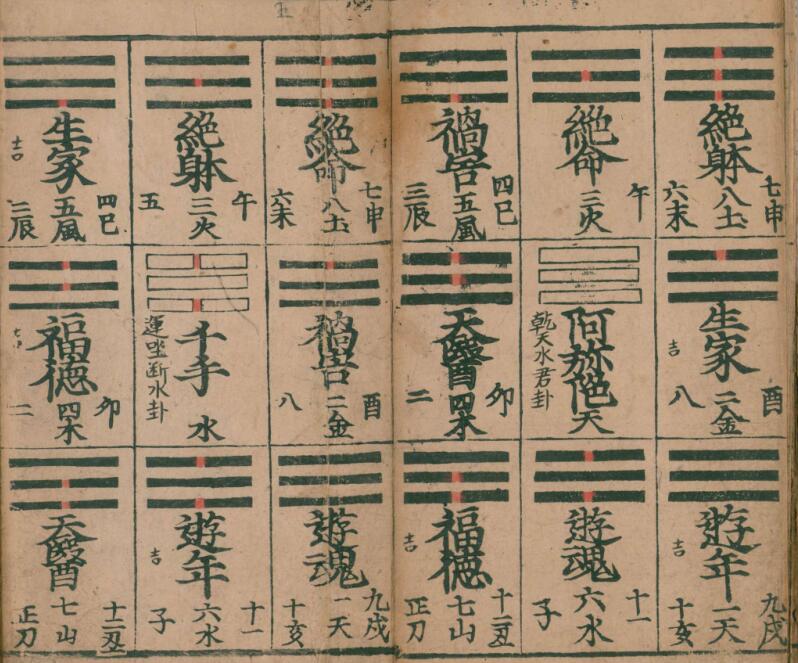 絶躰
七申
八土
六未
絶命
午
三火
禍害
四巳
五風
三辰
絶命
七申
八土
六未
絶躰
午
三火
五
生家
吉
四巳
五風
三辰
生家
吉
酉
二金
八
阿弥陀
天
乾天水君卦
天醫
卯
四木
二
禍害
酉
二金
八
千手
水
福徳
卯
四木
二
遊年
吉
九戌
一天
十亥
遊魂
十一
六水
子
福徳
吉
十二丑
七山
正刀
遊魂
九戌
一天
十亥
遊年
吉
十一
六水
子
天醫
十二丑
七山
正刀